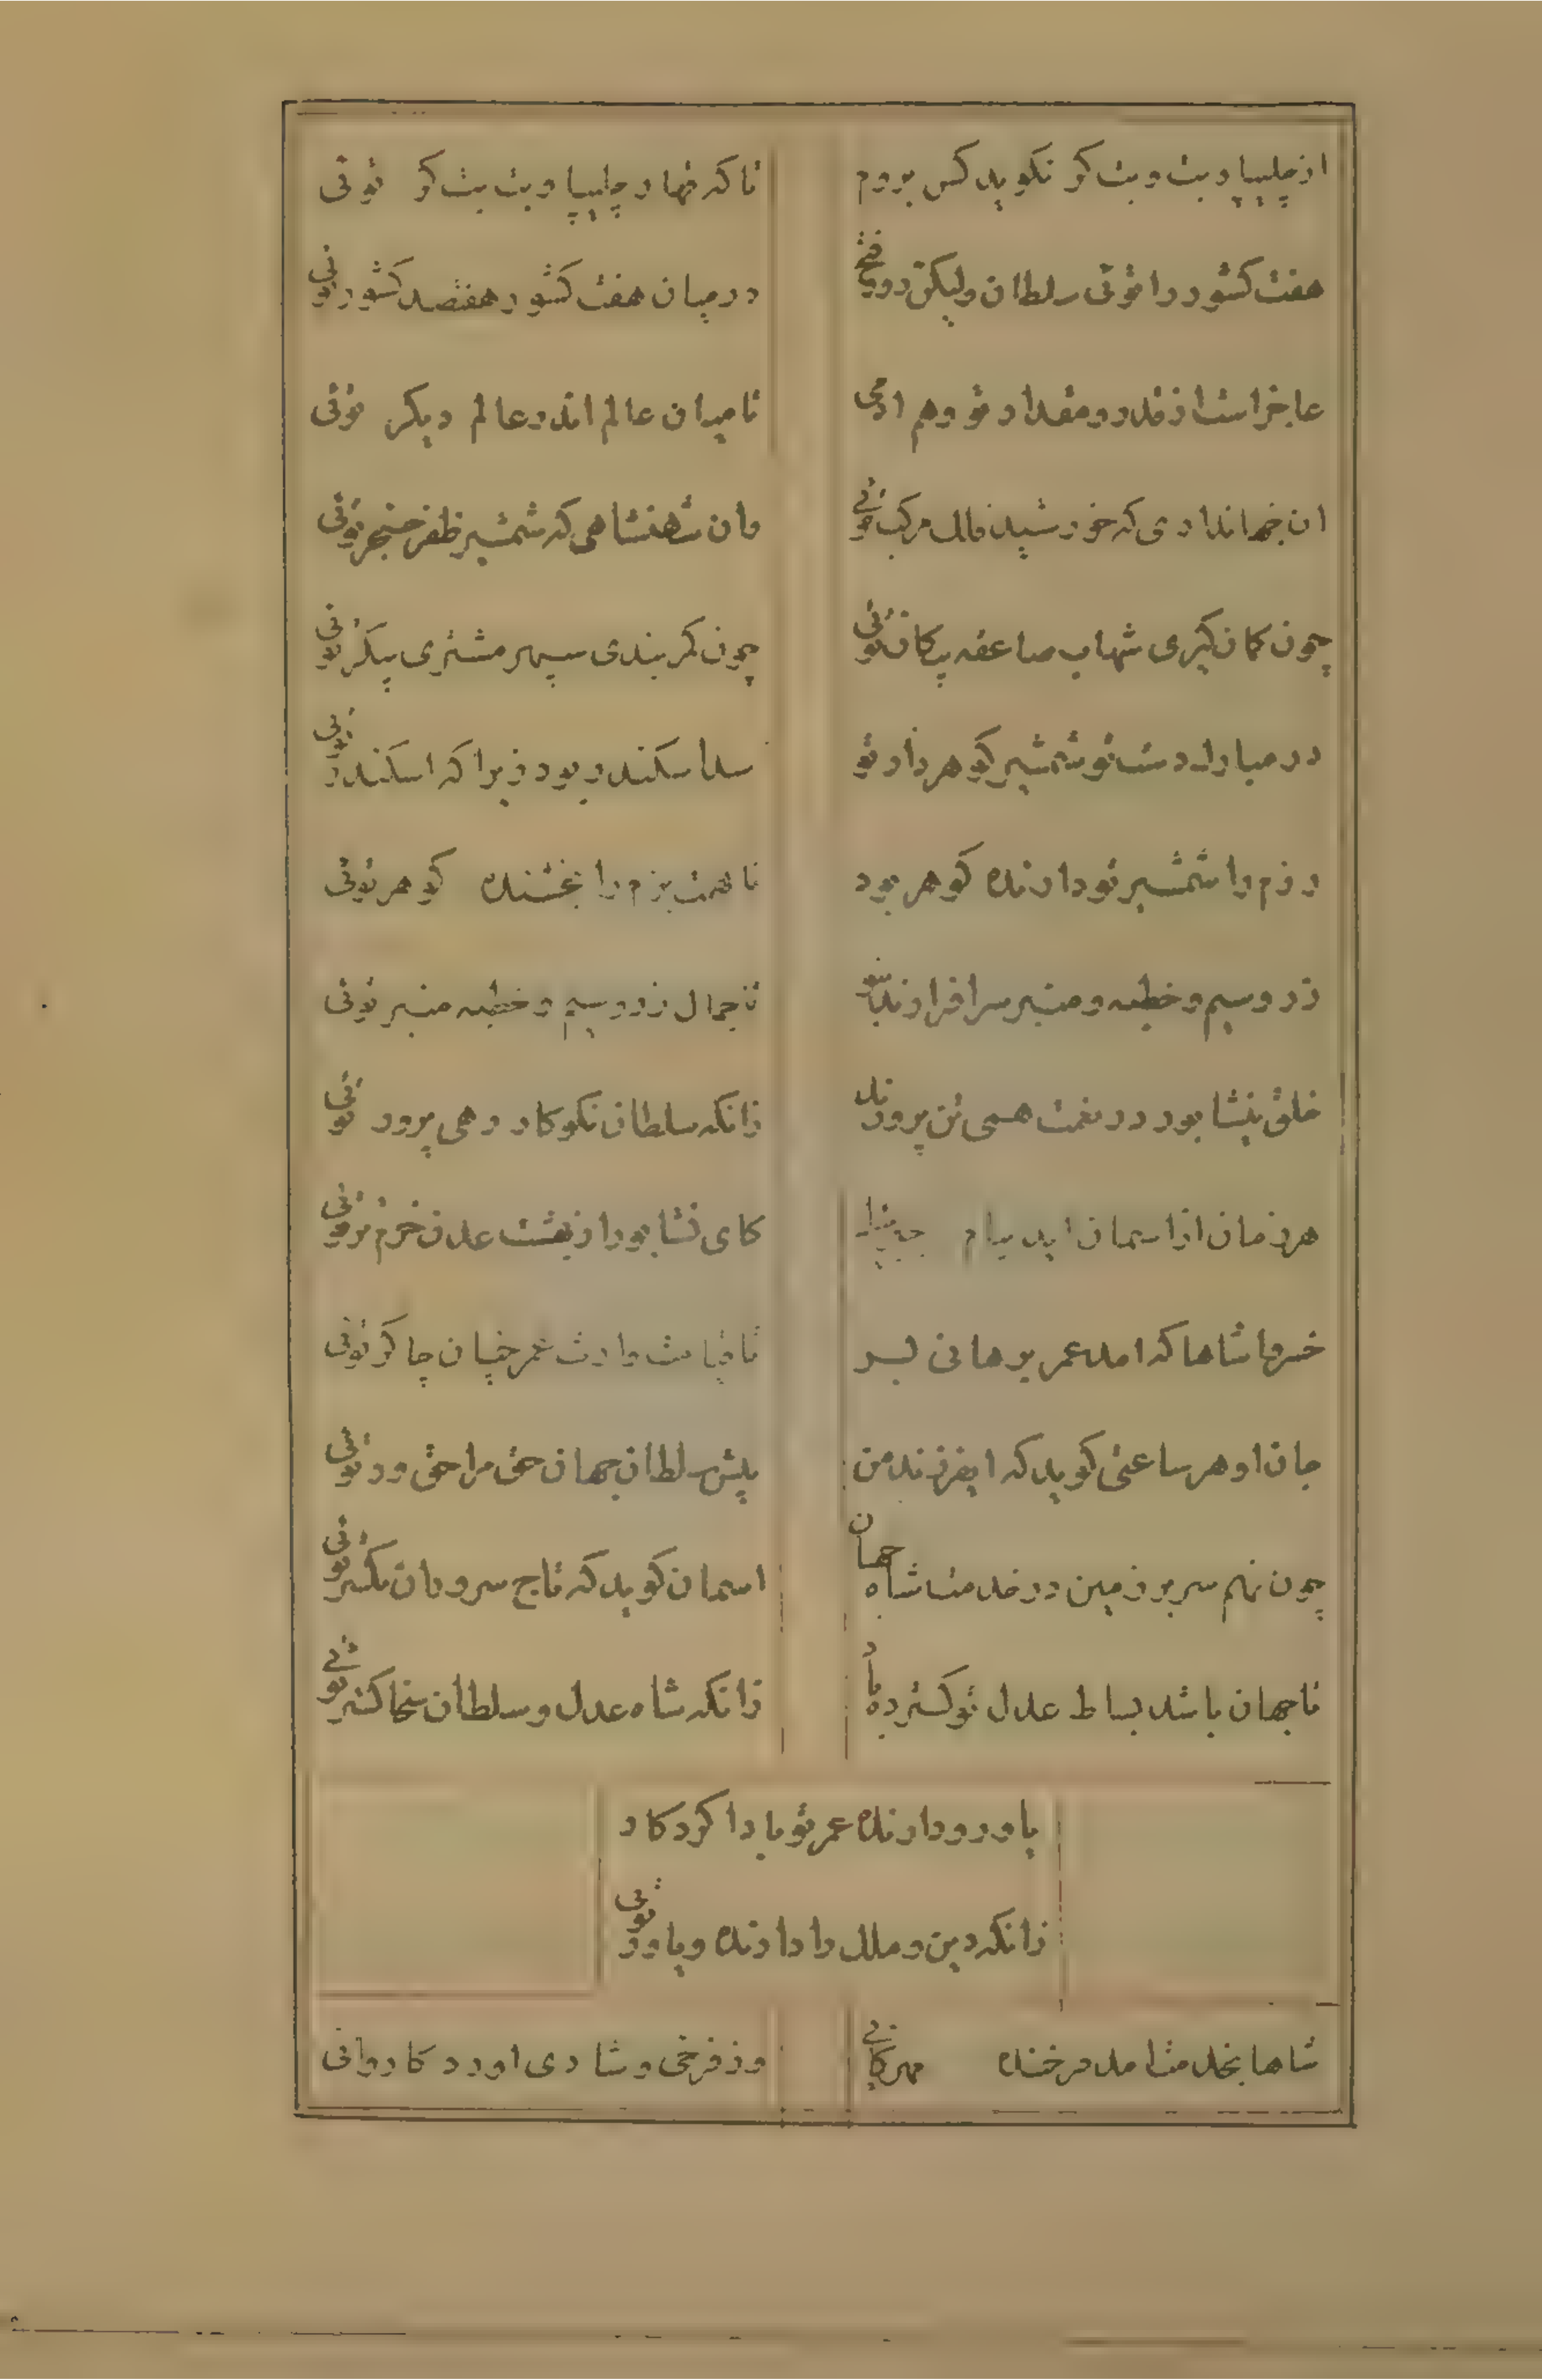 از چلیپا و بت و بت کر نکوید کس بروم	تا که قهار چلیپا و بت بت کر توئی
هفت کشور را توئی سلطان ولیکن روز فتح	در میان هفت کشور هفتصد کشور توئی
عاجز است از قدر و مقدار تو وهم ادمی	تا میان عالم اندر عالم دیکر توئی
ان جهانداری که خورشید فلک مرکب توئی	وان شهنشاهی که شمشیر ظفر خنجر توئی
چون کمان کیری شهاب صاعقه پیکان توئی	چون کمر بندی سپهر مشتری پیکر توئی
در مبارک دست تو شمشیر کوهردار تو	سد اسکندر بود زیرا که اسکندر توئی
رزم را شمشیر تو دارنده کوهر بود	تا همت بزم را بخشنده کوهر توئی
زر و سیم و خطبه و منبر سرافرازند	تا جمال زر و سیم و خطبه منبر توئی
خلق نیشابور در نعمت همی تن پرورند	زانکه سلطان نکوکار رهی پرور توئی
هر زمان از اسمان اید پیام	کای نشابور از بهشت عدن خرم تر توئی
خسروا شاها که امد عمر برهانی بسر	تا قیامت وارث عمر چنان چاکر توئی
جان او هر ساعتی کوید که ایفرزند من	پیش سلطان جهان حق مرا حق ور توئی
چون نهم سر بر زمین در خدمت شاه جهان	اسمان کوید که تاج سروران یکسر توئی
تا جهان باشد بساط عدل تو کسترده باد	زانکه شاه عدل و سلطان سخا کستر توئی
یاور و دارنده عمر تو بادا کردکار
زانکه دین و ملک را دارنده و یاور توئی
شاها بخدمت امد فرخنده مهرکانی	وز فرخی و شادی اورد کاروانی